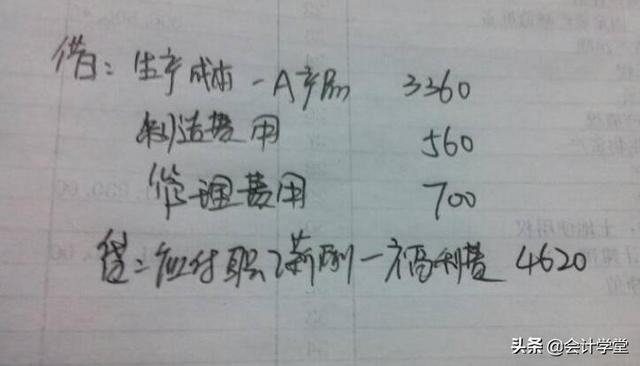 借：生产成本－A产品 3360
制造费用 560
管理费用 700
贷：应付职工薪酬－福利费 4620
头条 @会计学堂